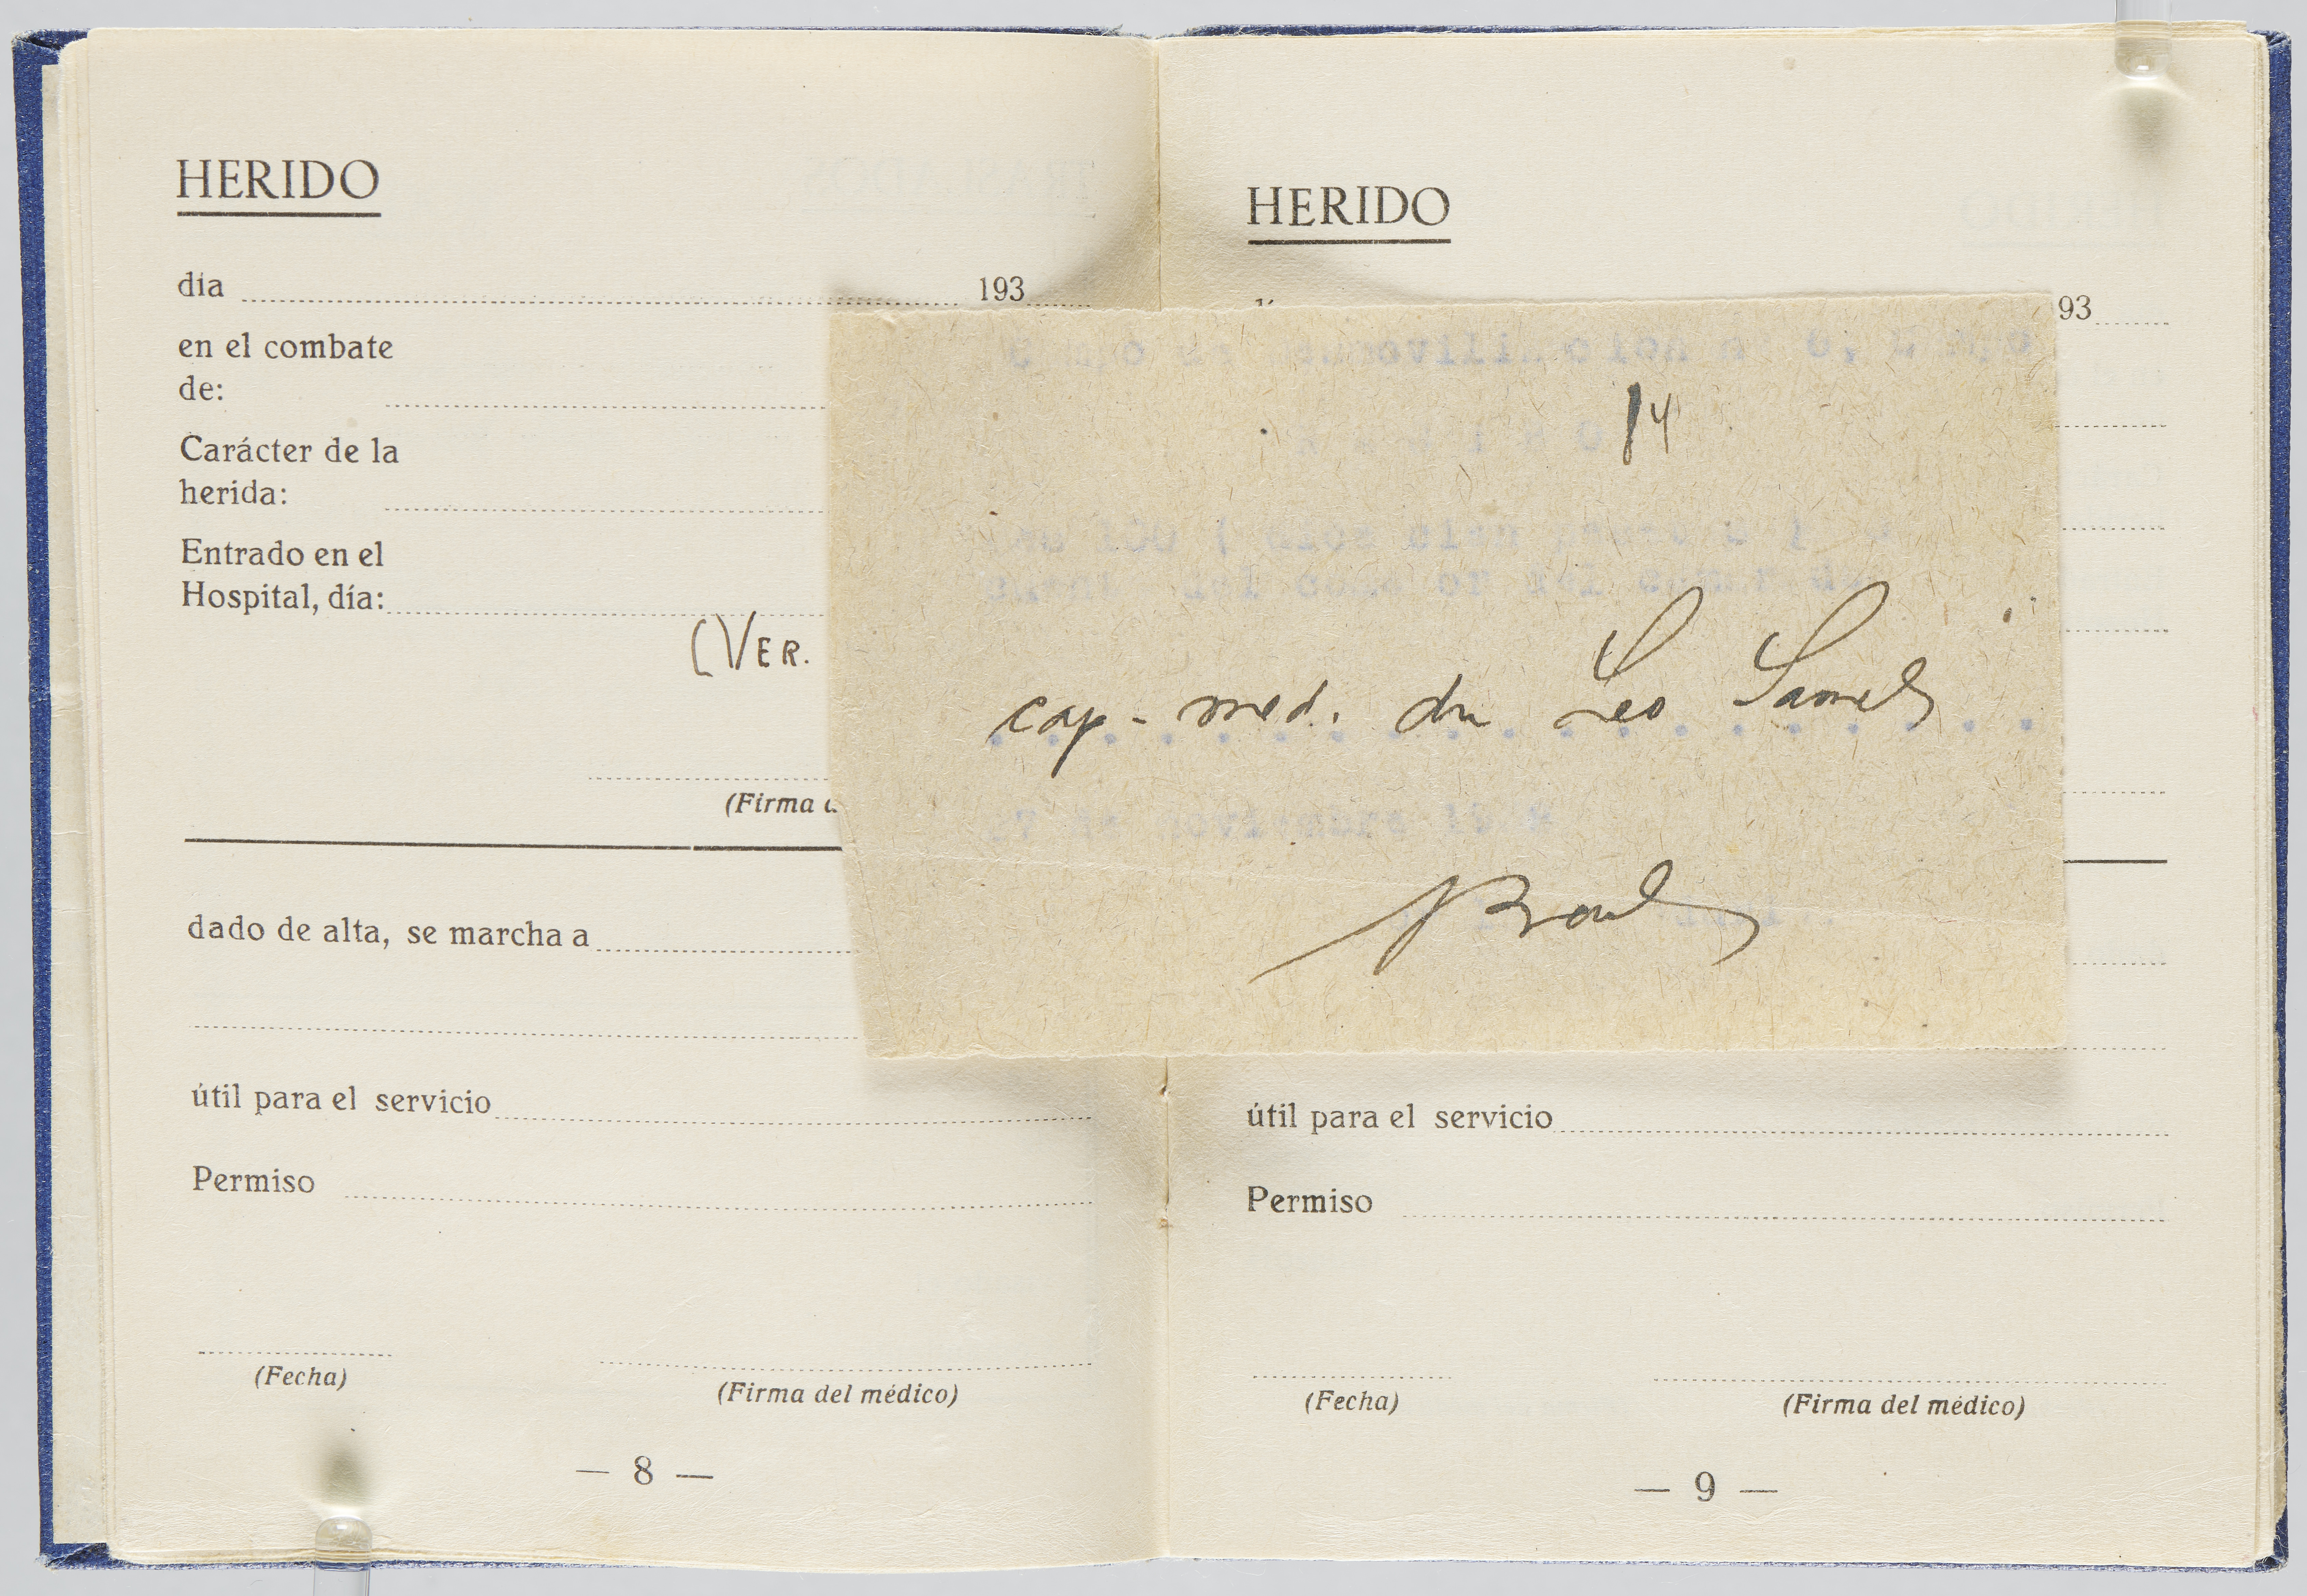 HERIDO
día 193
en el combate
de:
Carácter de la
herida:
Entrado en el
Hospital, día:
(VER.
(Firma
dado de alta, se marcha a
útil para el servicio
Permiso
(Fecha)
(Firma del médico)
— 8 —
HERIDO
93
14
cap. med. dr. Leo Samel
útil para el servicio
Permiso
(Fecha)
(Firma del médico)
— 9 —